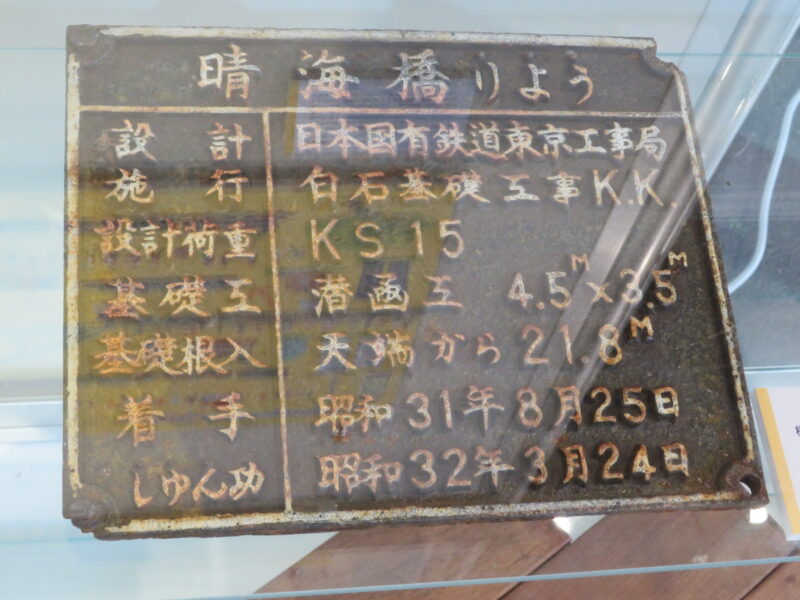 晴海橋りよう
設計 日本国有鉄道東京工事局
施行 白石基礎工事K.K.
設計荷重 KS15
基礎工 潜函工 4.5M×3.5M
基礎根入 天端から21.8M
着手 昭和31年8月25日
しゆん功 昭和32年3月24日